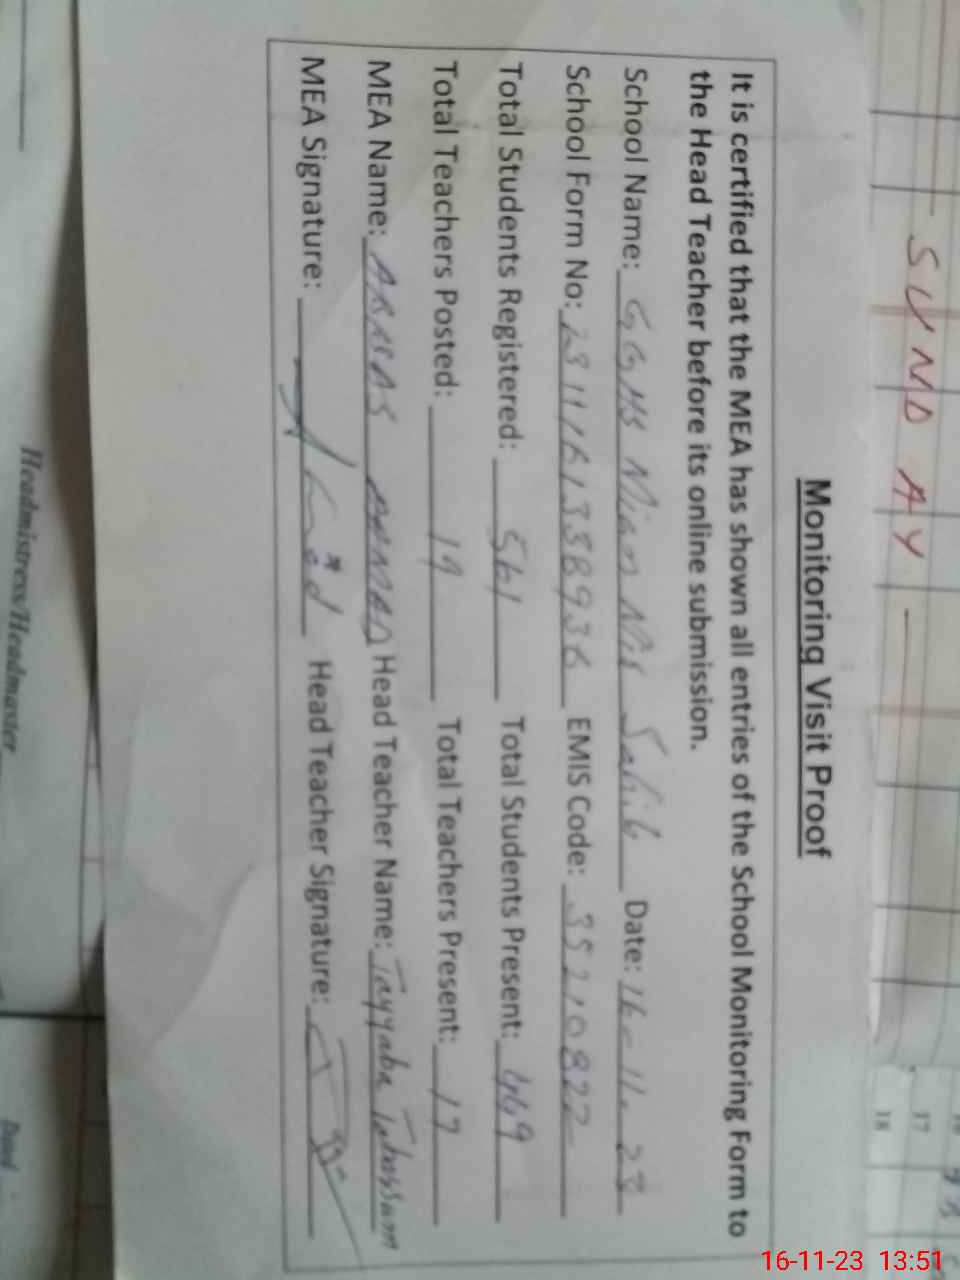 SUNDAY
17
18
Monitoring Visit Proof
It is certified that the MEA has shown all entries of the School Monitoring Form to
the Head Teacher before its online submission.
School Name: GGHS Mian Mir Sahib Date: 16-11-23
School Form No: EMIS Code: 35210822
Total Students Registered: 561 Total Students Present: 449
Total Teachers Posted: 19 Total Teachers Present: 17
MEA Name: Head Teacher Name: Tayyaba Tabassum
MEA Signature: Head Teacher Signature:
Headmistress/Headmaster
Dated
16-11-23 13:51